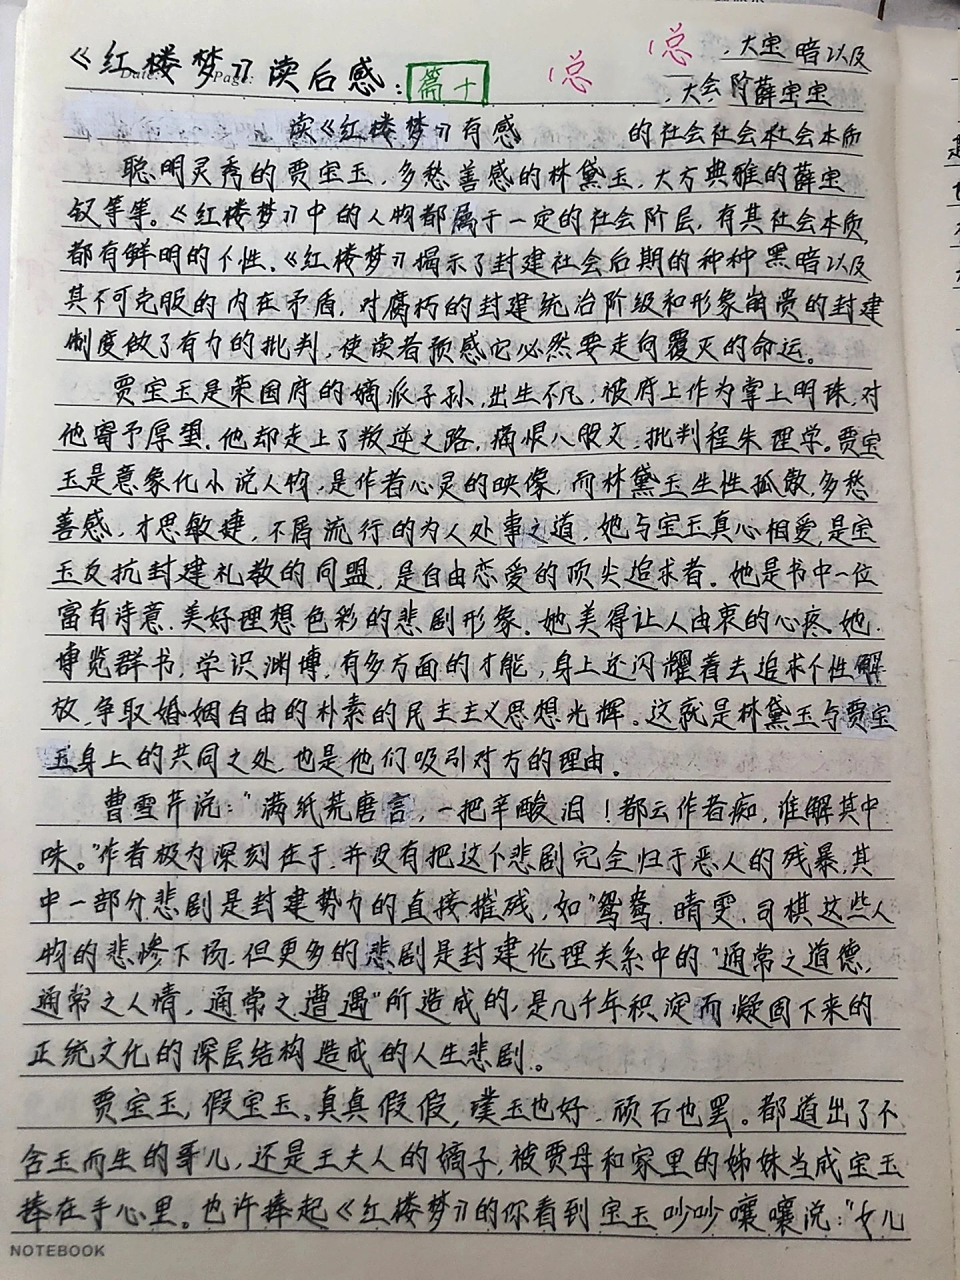 《红楼梦》读后感：篇十
总
总
大宝 暗以及
大会 阶薛宝宝
读《红楼梦》有感 的社会社会社会本质
聪明灵秀的贾宝玉，多愁善感的林黛玉，大方典雅的薛宝
钗等等。《红楼梦》中的人物都属于一定的社会阶层，有其社会本质，
都有鲜明的个性。《红楼梦》揭示了封建社会后期的种种黑暗以及
其不可克服的内在矛盾，对腐朽的封建统治阶级和形象崩溃的封建
制度做了有力的批判，使读者预感它必然要走向覆灭的命运。
贾宝玉是荣国府的嫡派子孙，出生不凡，被府上作为掌上明珠，对
他寄予厚望，他却走上了叛逆之路，痛恨八股文，批判程朱理学。贾宝
玉是意象化小说人物，是作者心灵的映像，而林黛玉生性孤傲，多愁
善感，才思敏捷，不屑流行的为人处事之道，她与宝玉真心相爱，是宝
玉反抗封建礼教的同盟，是自由恋爱的顶尖追求者。她是书中一位
富有诗意、美好理想色彩的悲剧形象。她美得让人由衷的心疼。她
博览群书，学识渊博，有多方面的才能，身上还闪耀着去追求个性解
放，争取婚姻自由的朴素的民主主义思想光辉。这就是林黛玉与贾宝
玉身上的共同之处，也是他们吸引对方的理由。
曹雪芹说："满纸荒唐言，一把辛酸泪！都云作者痴，谁解其中
味。"作者极为深刻在于，并没有把这个悲剧完全归于恶人的残暴，其
中一部分悲剧是封建势力的直接摧残，如"鸳鸯、晴雯、司棋这些人
物的悲惨下场，但更多的悲剧是封建伦理关系中的"通常之道德，
通常之人情，通常之遭遇"所造成的，是几千年积淀而凝固下来的
正统文化的深层结构造成的人生悲剧。
贾宝玉，假宝玉。真真假假，璞玉也好，顽石也罢。都道出了不
含玉而生的哥儿，还是王夫人的嫡子，被贾母和家里的姊妹当成宝玉
捧在手心里。也许捧起《红楼梦》的你看到宝玉吵吵嚷嚷说："女儿
NOTEBOOK